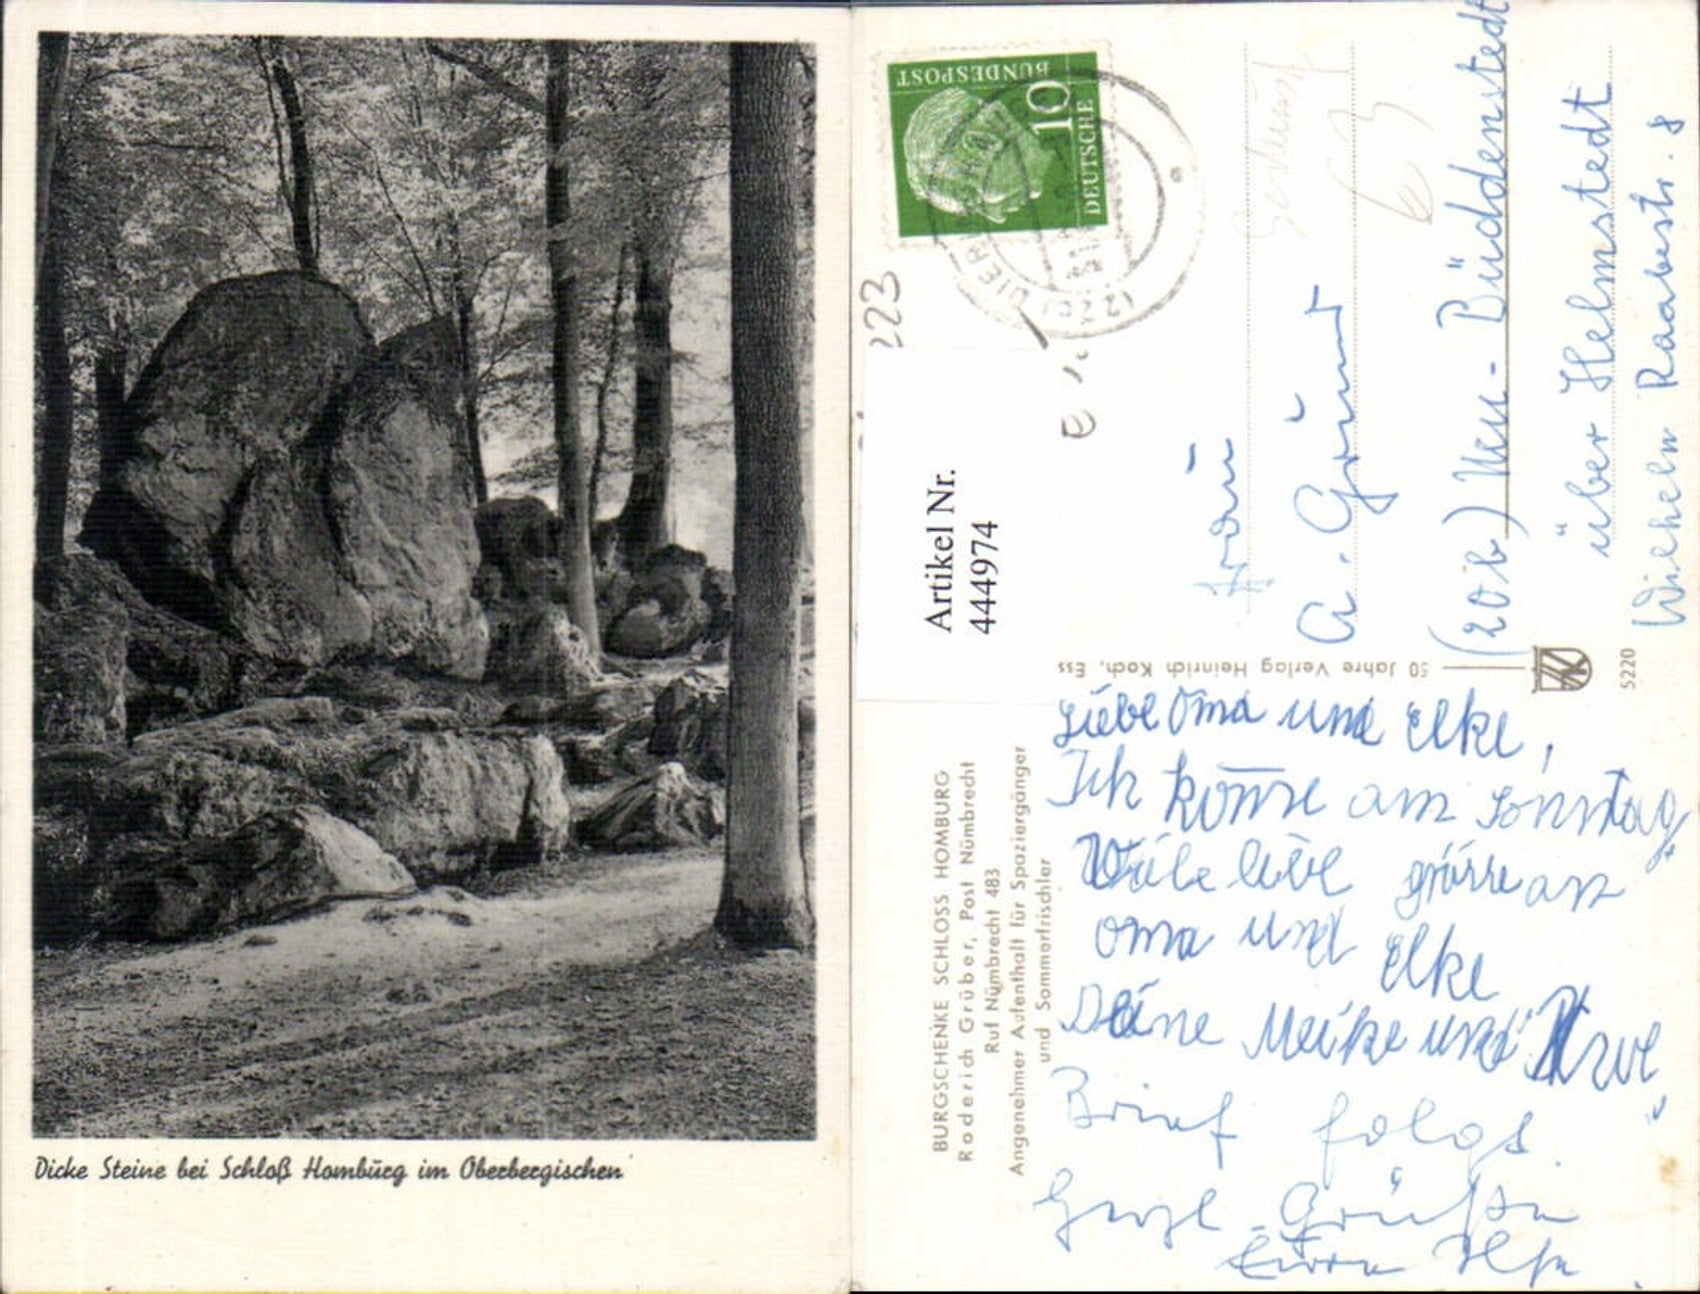 Dicke Steine bei Schloß Homburg im Oberbergischen
DEUTSCHE
BUNDESPOST
10
223
Artikel Nr.
444974
BURGSCHENKE SCHLOSS HOMBURG
Roderich Grüber, Post Nümbrecht
Ruf Nümbrecht 483
Angenehmer Aufenthalt für Spaziergänger
und Sommerfrischler
50 Jahre Verlag Heinrich Koch, Ess
5220
Frau
A. Grund
(20b) Neu-Büddenstedt
über Helmstedt
Wilhelm Raabestr. 8
Liebe Oma und Elke,
Ich komme am Sonntag
Viele liebe grüsse an
Oma und Elke
Deine Meike und
Brief folgt.
Herzl. Grüße
Eure